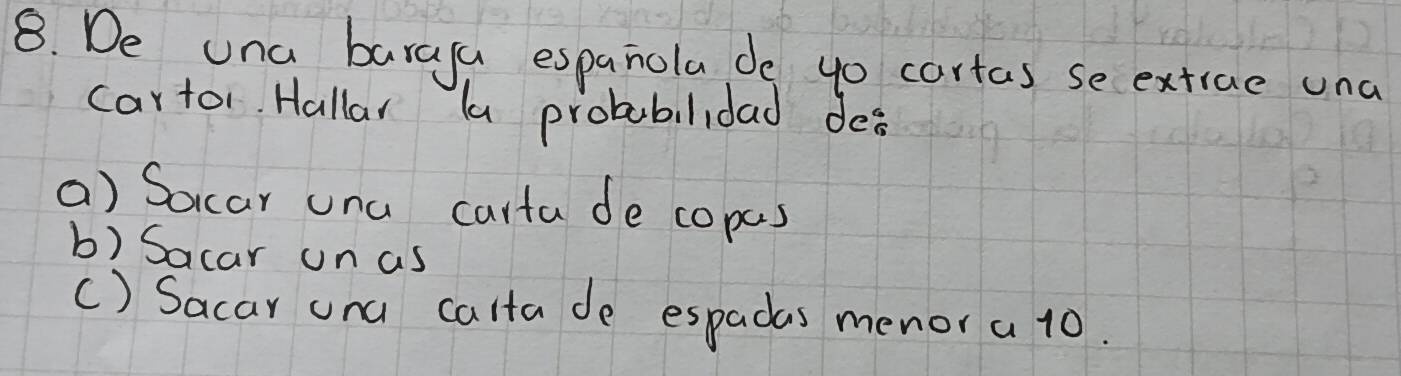 8. De una baraja española de 40 cartas se extrae una
carta. Hallar la probabilidad de:
a) Sacar una carta de copas
b) Sacar un as
c) Sacar una carta de espadas menor a 10.